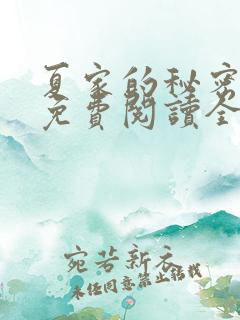 夏家的秘密
免費閱讀全
宛若新衣
未任同意禁止轉載